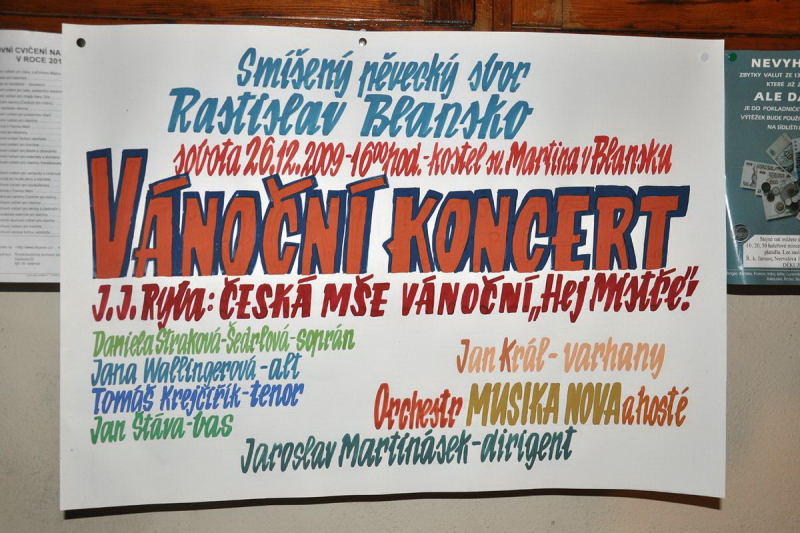 Smíšený pěvecký sbor
Rastislav Blansko
sobota 26.12.2009-16⁰⁰hod.-kostel sv. Martina v Blansku
VÁNOČNÍ KONCERT
J.J. Ryba: ČESKÁ MŠE VÁNOČNÍ „Hej Mistře"!
Daniela Straková-Šedrlová-soprán
Jana Wallingerová-alt
Tomáš Krejčiřík-tenor
Jan Šťáva-bas
Jan Král-varhany
Orchestr MUSIKA NOVA a hosté
Jaroslav Martinásek-dirigent
OVNÍ CVIČENÍ NA
V ROCE 201
NEVYH
ZBYTKY VALUT ZE 13
KTERÉ JIŽ
ALE DA
JE DO POKLADNIČK
VÝTĚŽEK BUDE POUŽ
NA SÍDLIŠTI